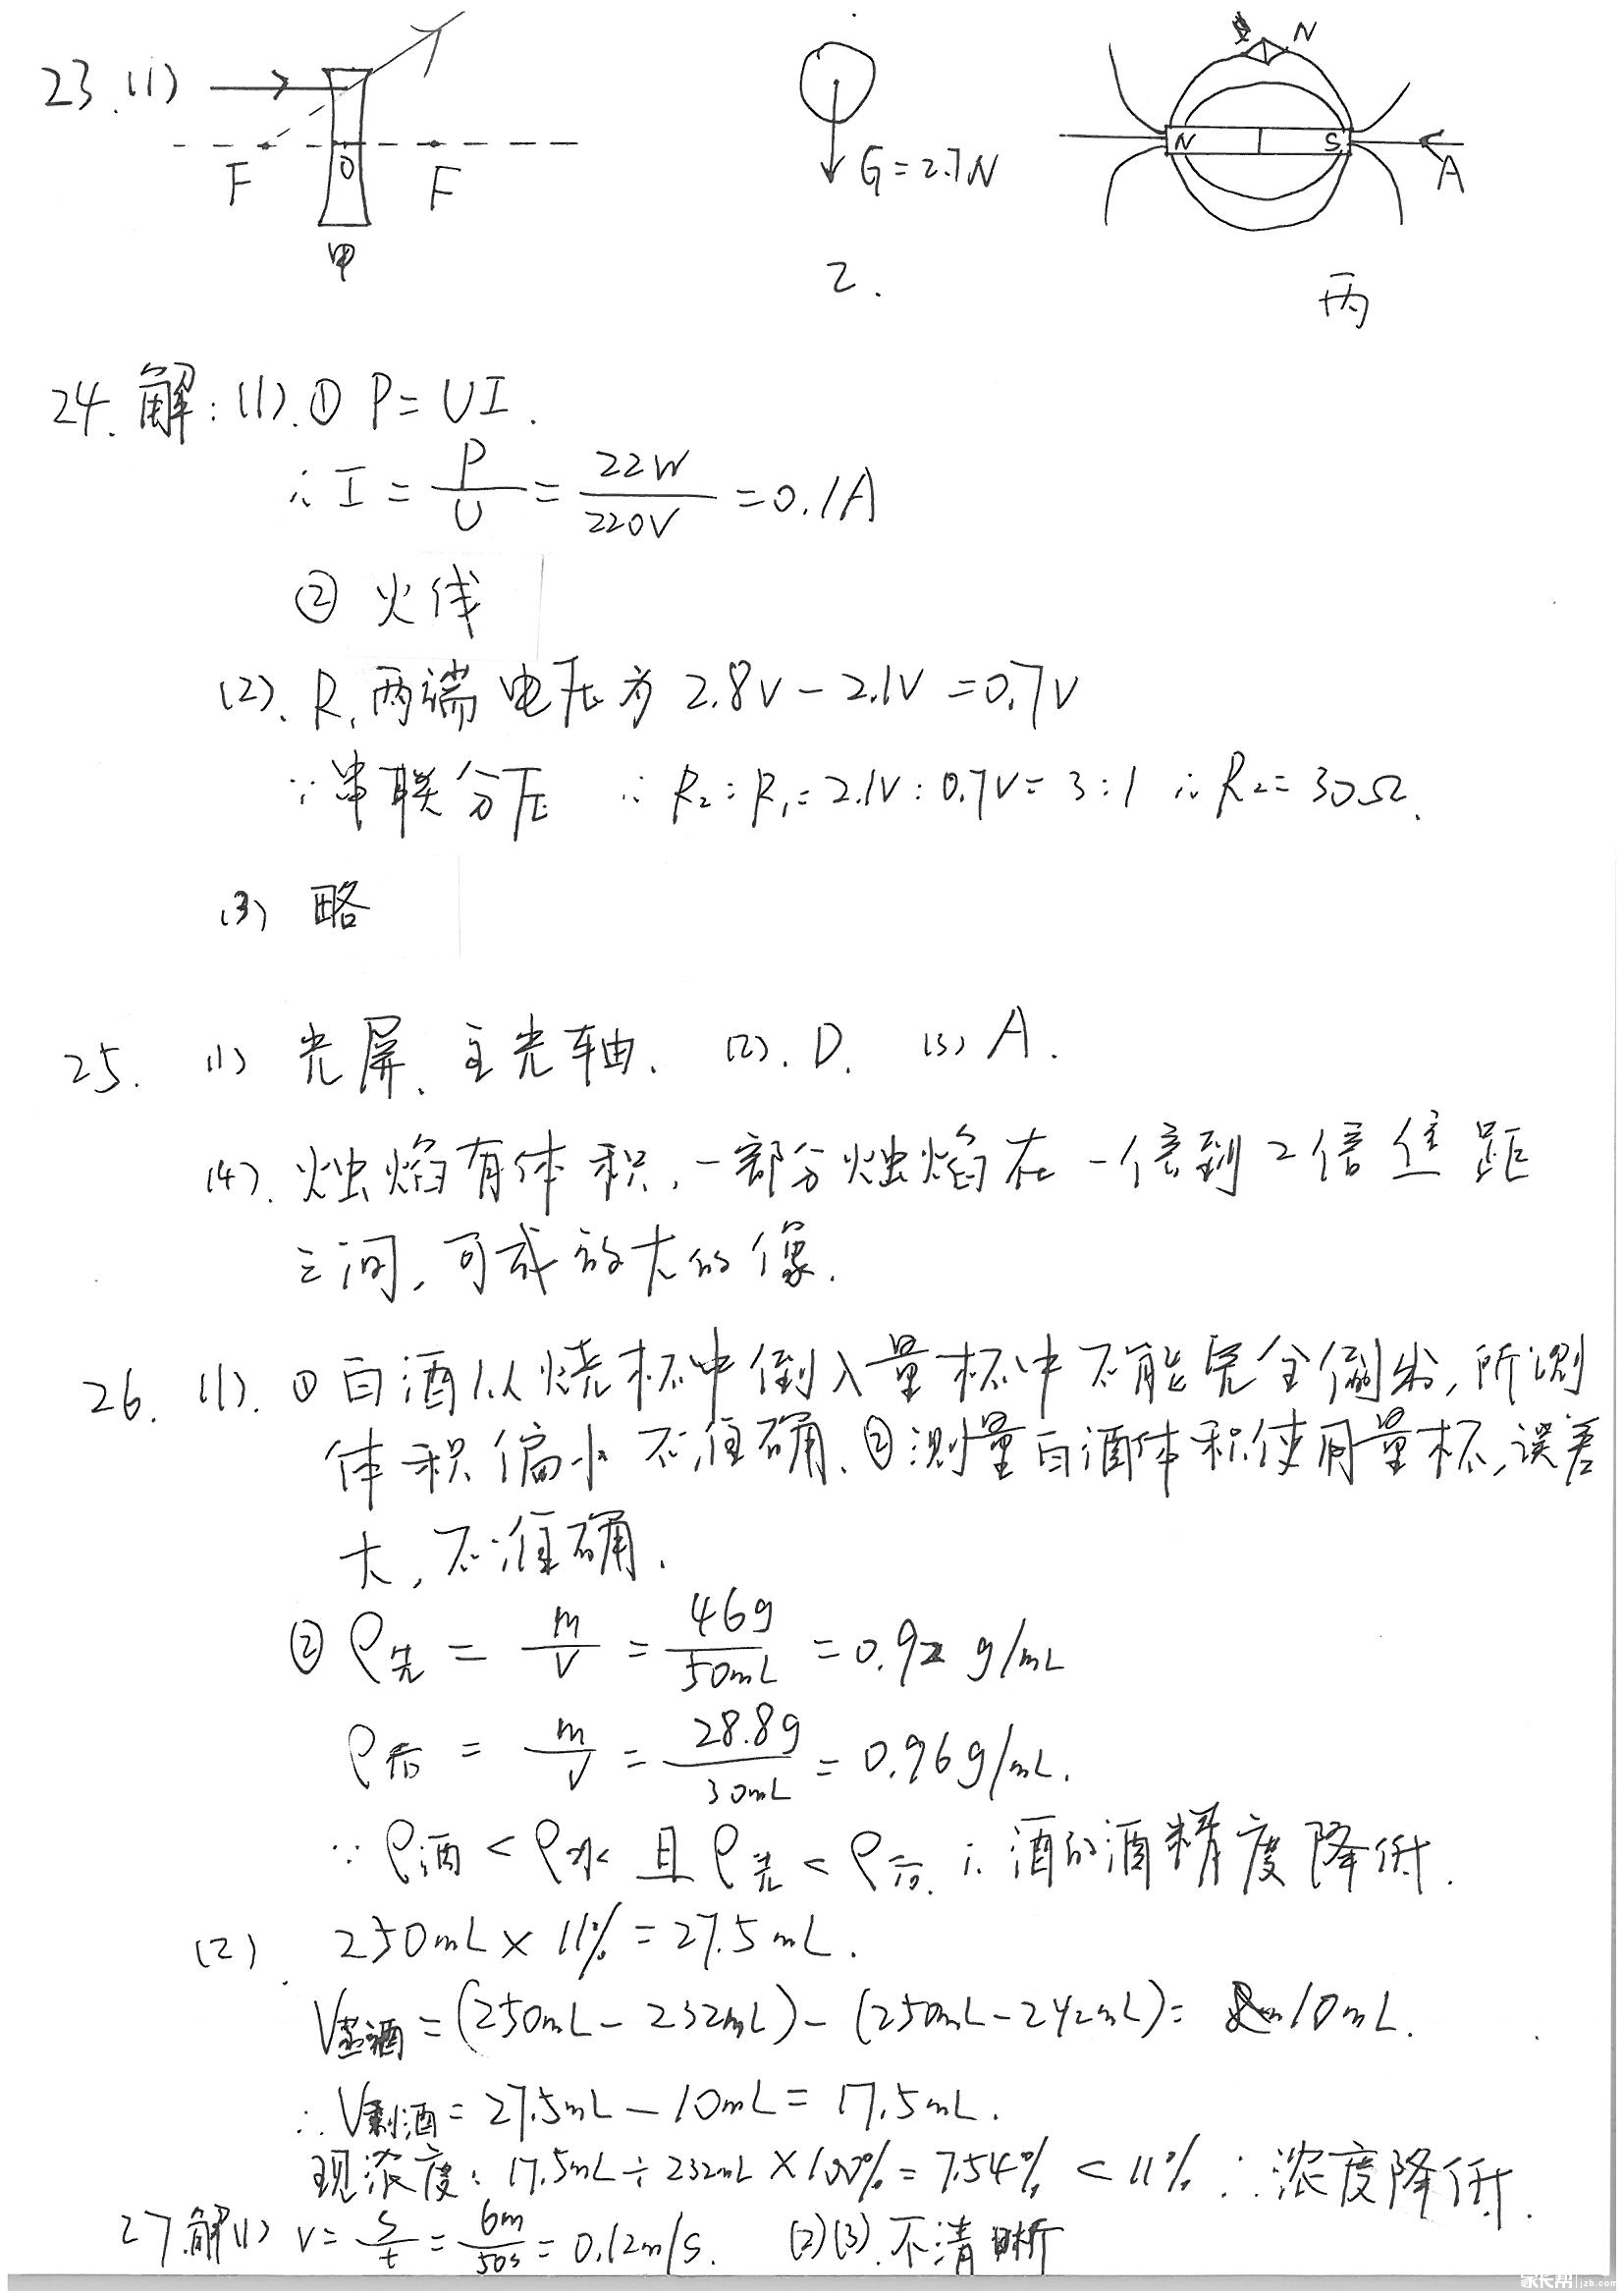 23.(1)
F O F
甲
G=2.7N
乙.
N
N S
A
丙
24.解:(1).① P=UI.
∴ I = P/U = 22W/220V = 0.1A
② 火线
(2). R₁两端电压为 2.8V-2.1V=0.7V
∵串联分压 ∴ R₂:R₁=2.1V:0.7V=3:1 ∴ R₂=30Ω.
(3) 略
25. (1) 光屏、主光轴. (2). D. (3) A.
(4). 烛焰有体积,一部分烛焰在一倍到2倍焦距
之间,可成放大的像.
26. (1). ①白酒从烧杯中倒入量杯中不能完全倒出,所测
体积偏小不准确.②测量白酒体积使用量杯,误差
大,不准确.
② ρ先 = m/V = 46g/50mL = 0.92 g/mL
ρ后 = m/V = 28.8g/30mL = 0.96g/mL.
∵ ρ酒 < ρ水 且 ρ先 < ρ后. ∴ 酒的酒精度降低.
(2). 250mL×11%=27.5mL.
V蒸酒=(250mL-232mL)-(250mL-242mL)= 10mL.
∴ V剩酒=27.5mL-10mL=17.5mL.
现浓度: 17.5mL÷232mL×100%=7.54%<11% ∴浓度降低.
27.解(1) v=s/t=6m/50s=0.12m/s. (2)(3).不清晰
家长帮 jzb.com